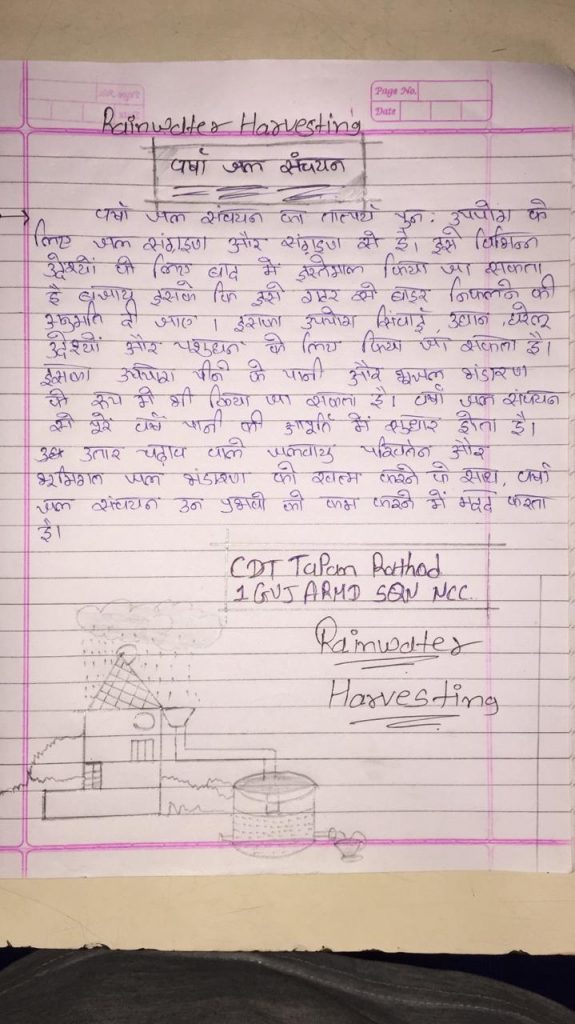 Page No.
Date
Rainwater Harvesting
वर्षा जल संचयन
वर्षा जल संचयन का तात्पर्य पुन: उपयोग के
लिए जल संग्रहण और संग्रहण से है। इसे विभिन्न
उद्देश्यों के लिए बाद में इस्तेमाल किया जा सकता
है बजाय इसके कि इसे गटर से बाहर निकलने की
अनुमति दी जाए। इसका उपयोग सिंचाई, उद्यान, घरेलू
उद्देश्यों और पशुधन के लिए किया जा सकता है।
इसका उपयोग पीने के पानी और भूजल भंडारण
के रूप में भी किया जा सकता है। वर्षा जल संचयन
से पूरे वर्ष पानी की आपूर्ति में सुधार होता है।
उतार चढ़ाव वाले जलवायु परिवर्तन और
भूमिगत जल भंडारण को खत्म करने के साथ, वर्षा
जल संचयन उन प्रभवो को कम करने में मदद करता
है।
CDT Tapan Rathod
1 GUJ ARMD SQN NCC.
Rainwater
Harvesting